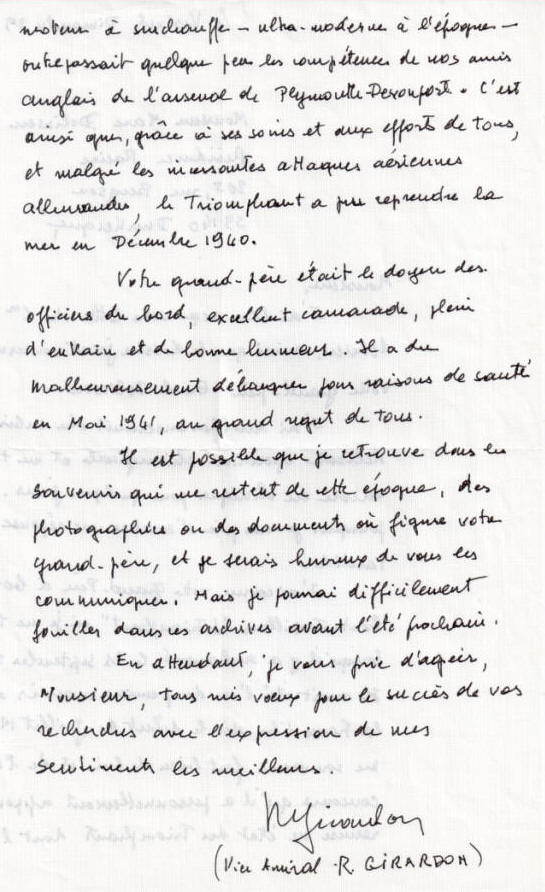 moteur à surchauffe - ultra-moderne à l'époque -
outrepassait quelque peu les compétences de nos amis
anglais de l'arsenal de Peymouth-Devonport. C'est
ainsi que, grâce à ses soins et aux efforts de tous,
et malgré les incessantes attaques aériennes
allemandes, le Triomphant a pu reprendre la
mer en Décembre 1940.
Votre grand-père était le doyen des
officiers du bord, excellent camarade, plein
d'entrain et de bonne humeur. Il a du
malheureusement débarquer pour raisons de santé
en Mai 1941, au grand regret de tous.
Il est possible que je retrouve dans les
souvenirs qui me restent de cette époque, des
photographies ou des documents où figure votre
grand-père, et je serais heureux de vous les
communiquer. Mais je pourrai difficilement
fouiller dans ces archives avant l'été prochain.
En attendant, je vous prie d'agréer,
Monsieur, tous mes voeux pour le succès de vos
recherches avec l'expression de mes
sentiments les meilleurs.
RGirardon
(Vice Amiral R. GIRARDON)